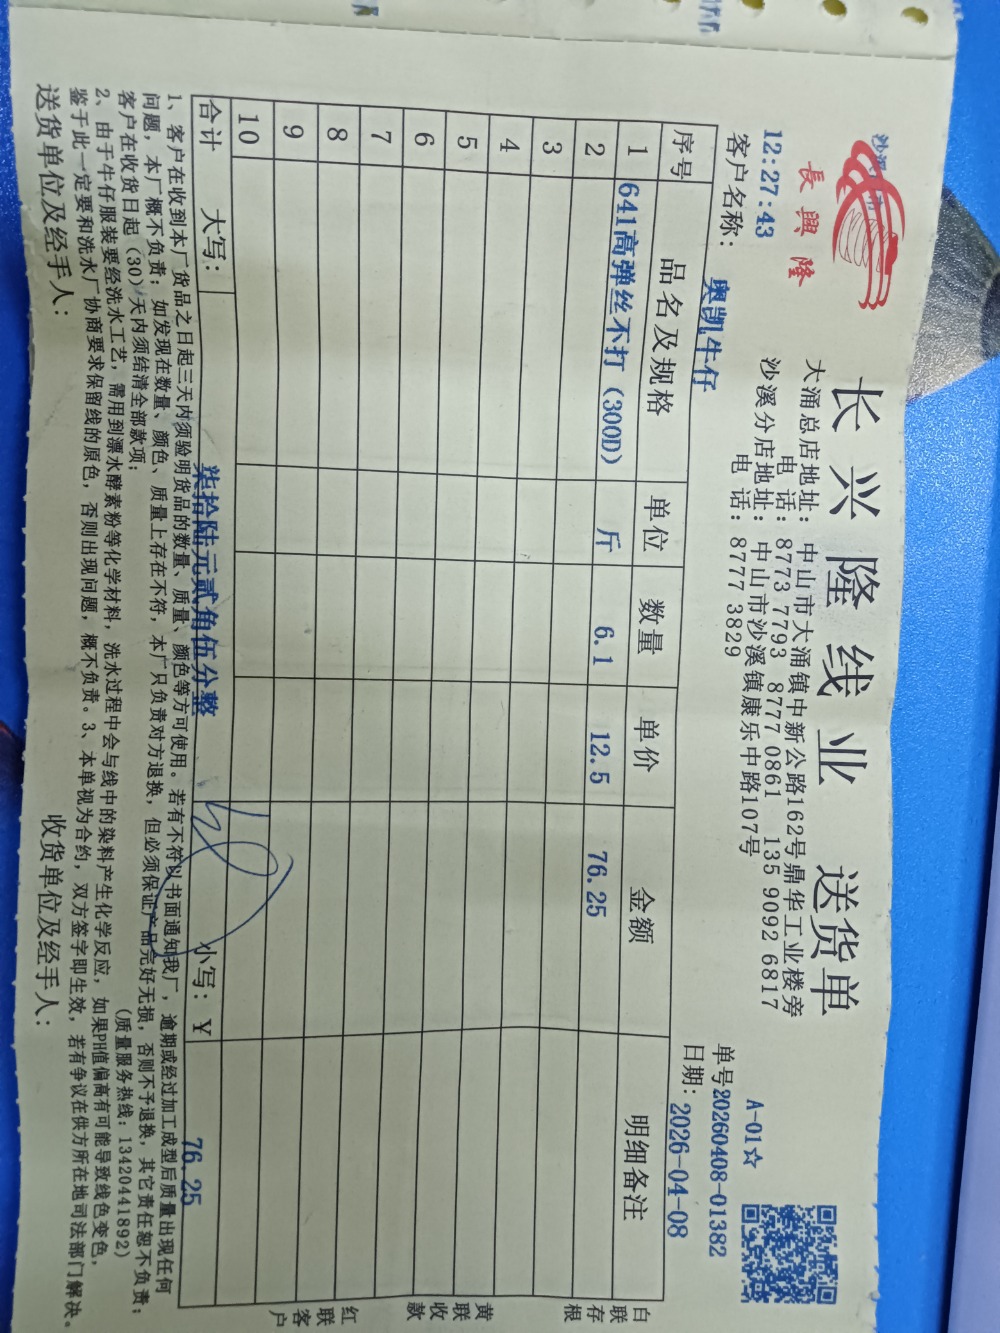 長興隆
长兴隆线业 送货单
大涌总店地址：中山市大涌镇中新公路162号鼎华工业楼旁
电 话：8773 7793 8777 0861 135 9092 6817
沙溪分店地址：中山市沙溪镇康乐中路107号
电 话：8777 3829
A-01☆
12:27:43
单号20260408-01382
客户名称：奥凯牛仔
日期：2026-04-08
序号 品名及规格 单位 数量 单价 金额 明细备注
1 641高弹丝不打（300D） 斤 6.1 12.5 76.25
2
3
4
5
6
7
8
9
10
合计 大写：柒拾陆元贰角伍分整 小写：¥ 76.25
白联存根
黄联收款
红联客户
1、客户在收到本厂货品之日起三天内须验明货品的数量、质量、颜色等方可使用。若有不符以书面通知我厂，逾期或经过加工成型后质量出现任何
问题，本厂概不负责；如发现在数量、颜色、质量上存在不符，本厂只负责对方退换，但必须保证产品完好无损，否则不予退换，其它责任恕不负责；
客户在收货日起（30）天内须结清全部款项； （质量服务热线：13420441892）
2、由于牛仔服装要经洗水工艺，需用到漂水酵素粉等化学材料，洗水过程中会与线中的染料产生化学反应，如果PH值偏高有可能导致线色变色，
鉴于此一定要和洗水厂协商要求保留线的原色，否则出现问题，概不负责。3、本单视为合约，双方签字即生效，若有争议在供方所在地司法部门解决。
送货单位及经手人： 收货单位及经手人：